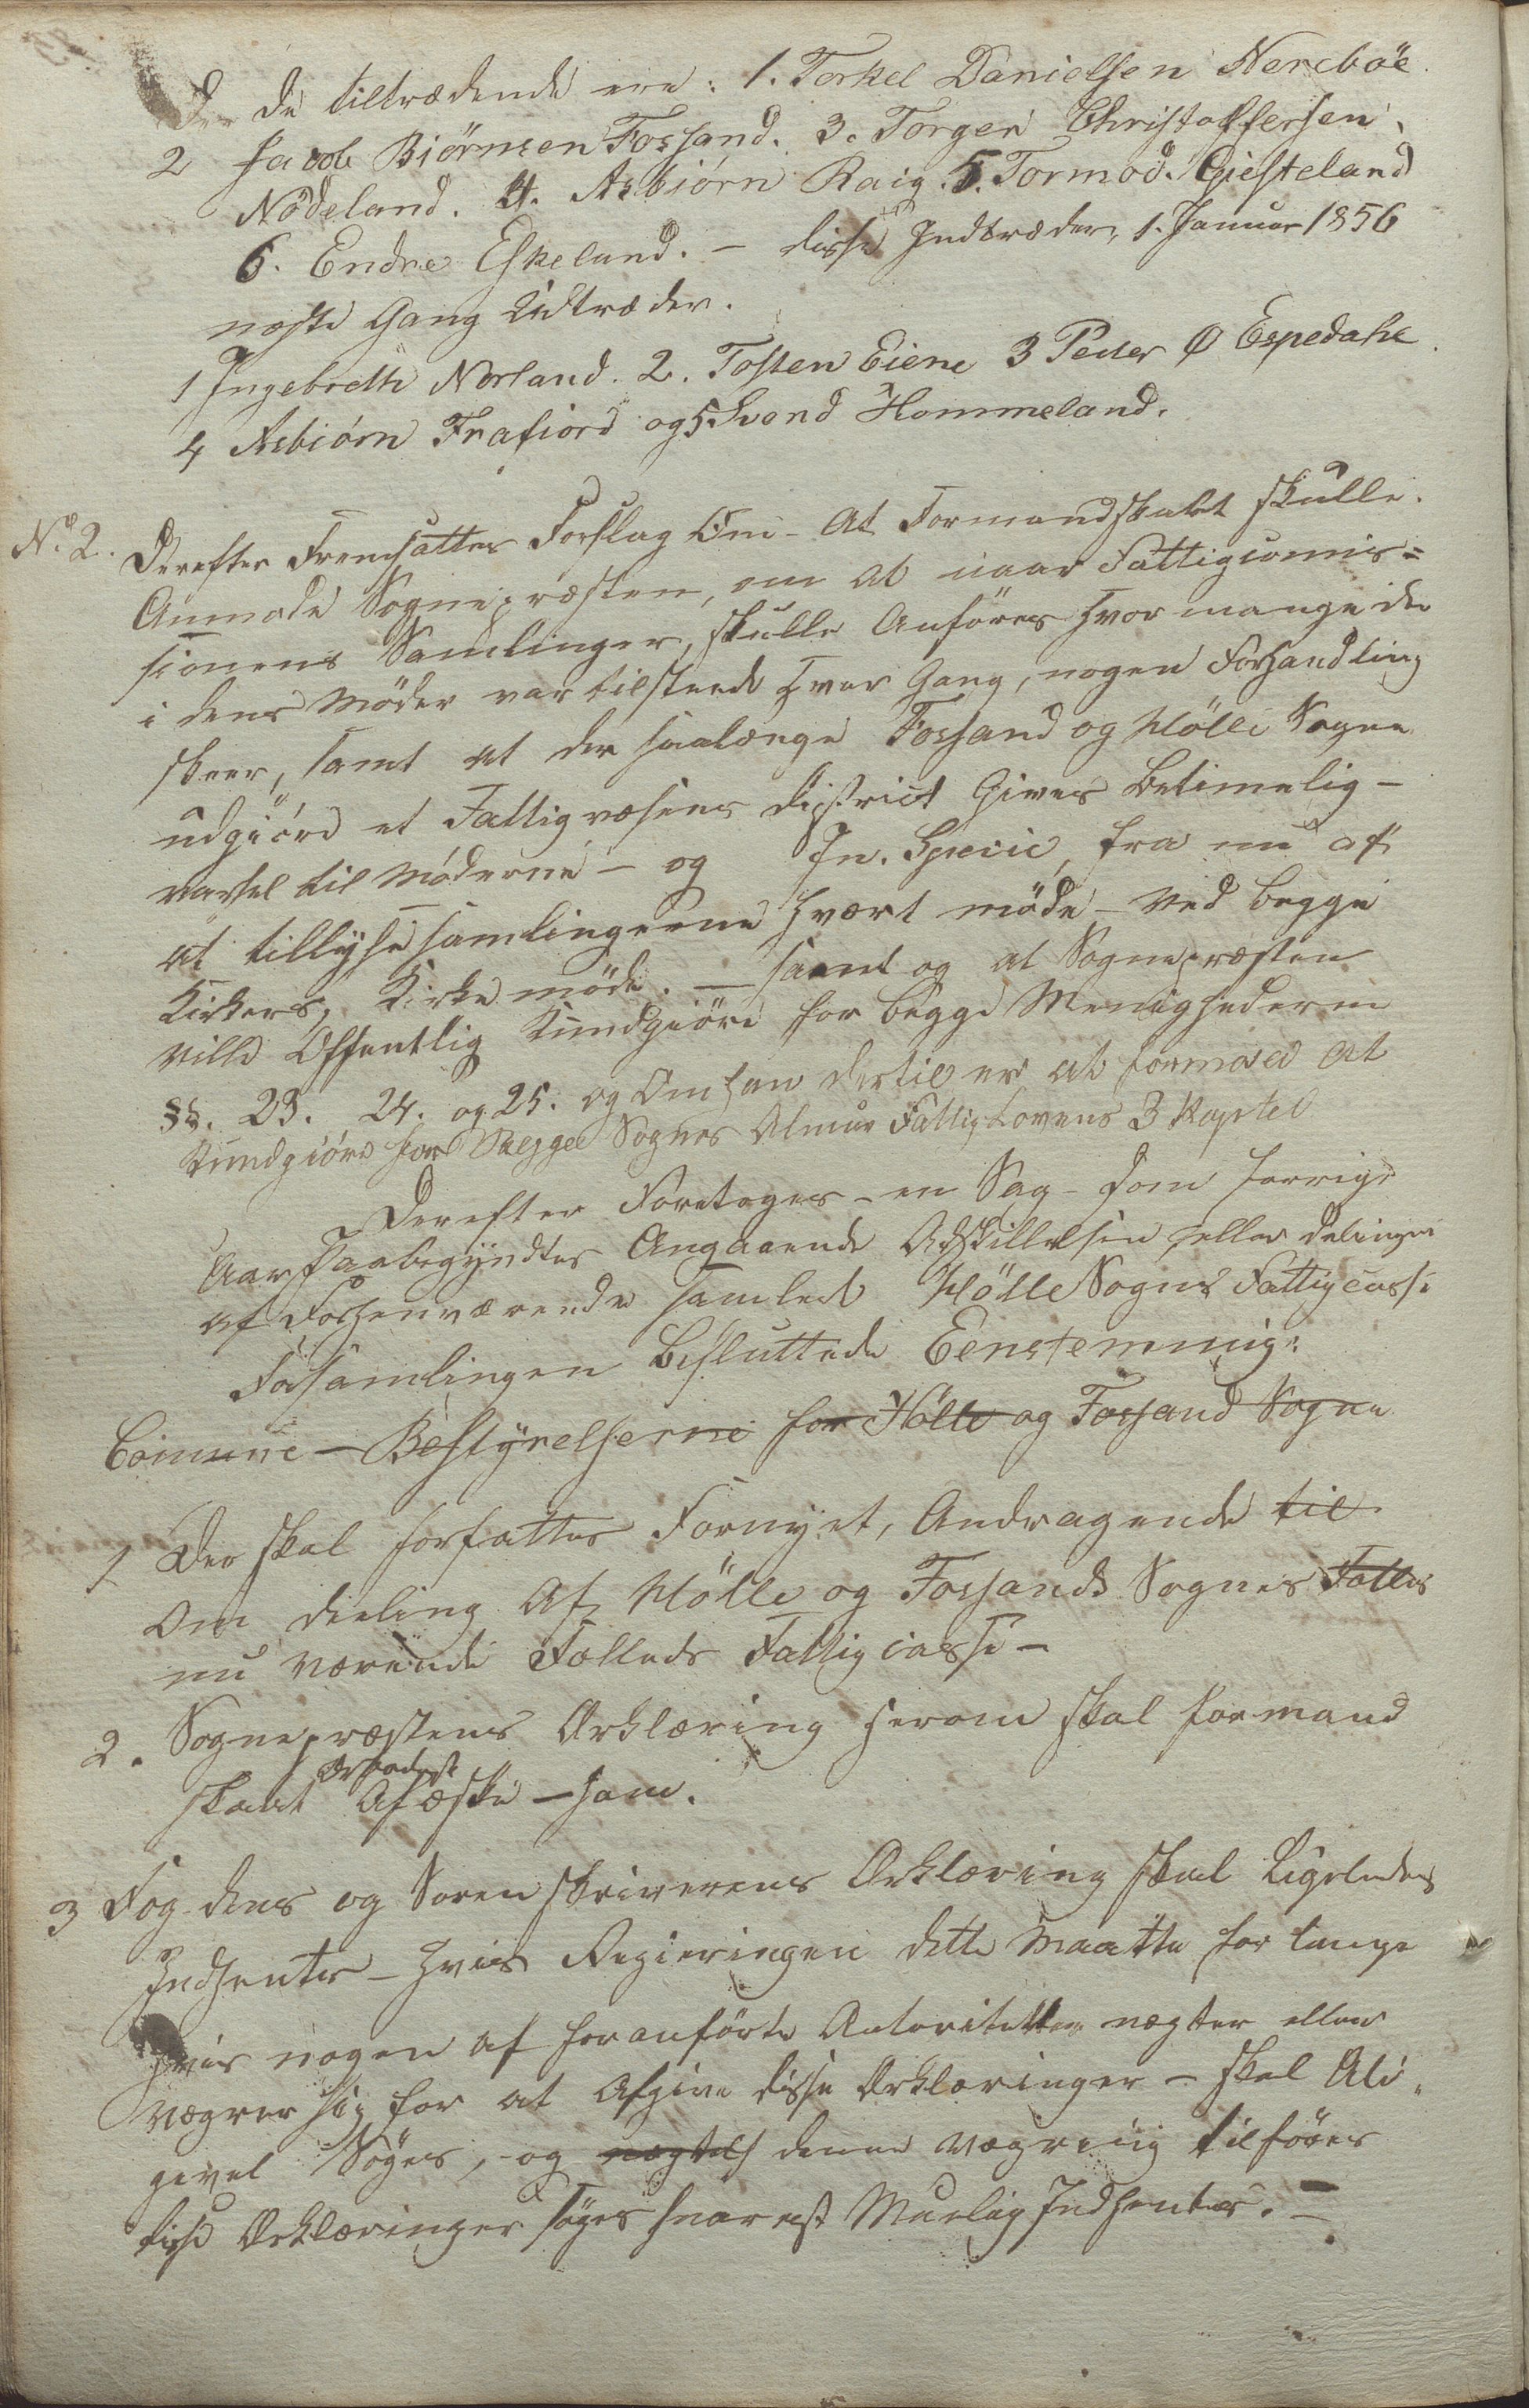 De de tiltrædende ere: 1. Torkel Danielsen Nerebøe.
2 Jacob Biörnsen Fossand. 3. Torger Christoffersen
Nödeland. 4. Asbiörn Raig. 5. Tormod Giesteland
6. Endre Eskeland. – disse Indtræder, 1. Januar 1856
næste Gang Udtræder.
1 Ingebreth Norland. 2. Tosten Eiene 3 Peder Ø Espedahl
4 Asbiørn Frafiord og 5 Svend Hommeland.
No. 2. Derefter Fremsattes Forslag Om – At Formandskabet skulle.
Anmode Sognepræsten, om at naar Fattigcomis=
sionens Samlinger, skulle Anføres Hvor mange der
i dens Møder var tilstæde Hver Gang, nogen Forhandling
skeer, samt at der saalænge Fossand og Hölle Sogne
udgiörd et Fattigvæsens District Gives betimelig –
varsel til Møderne – og In. Specie, fra nu af
at tillyse samlingerne Hvært møde – ved begge
Kirkers, Kirke møde. – samt og at Sognepræsten
ville Offentlig Kundgiöre for begge Menighederne
§§. 23. 24. og 25. og Om han dertil er at formaa at
Kundgiöre for Begge Sognes Almue Fattig Lovens 3 Kapitel
Derefter Foretoges – en Sag – som forrige
Aar Paabegyndtes Angaaende Adskillelsen, eller delingen
af Forhenværende samlede Hölle Sogns Fattigcasse
Forsamlingen Besluttede Eenstemmig:
Comune – Bestyrelserne for Hölle og Fossand Sogne
1 Der skal forfattes Fornyet, Andragende til
Om deeling Af Hölle og Fossands Sognes Fælles
nu værende Fælleds Fattig casse –
2. Sognepræstens Erklæring herom skal formand
Ærbødigst
skabet Afæske – ham.
3 Fogdens og Sorenskriverens Erklæring skal Ligeledes
Indhentes – Hvis Regieringen dette Maatte forlange
Hvis nogen af foranførte Autoriteter nægter eller
vægrer sig for at Afgive disse Erklæringer – skal Ali,
gevel Søges, – og nægtels denne vægring tilføres
disse Erklæringer søges snarest Muelig Indhentes. –